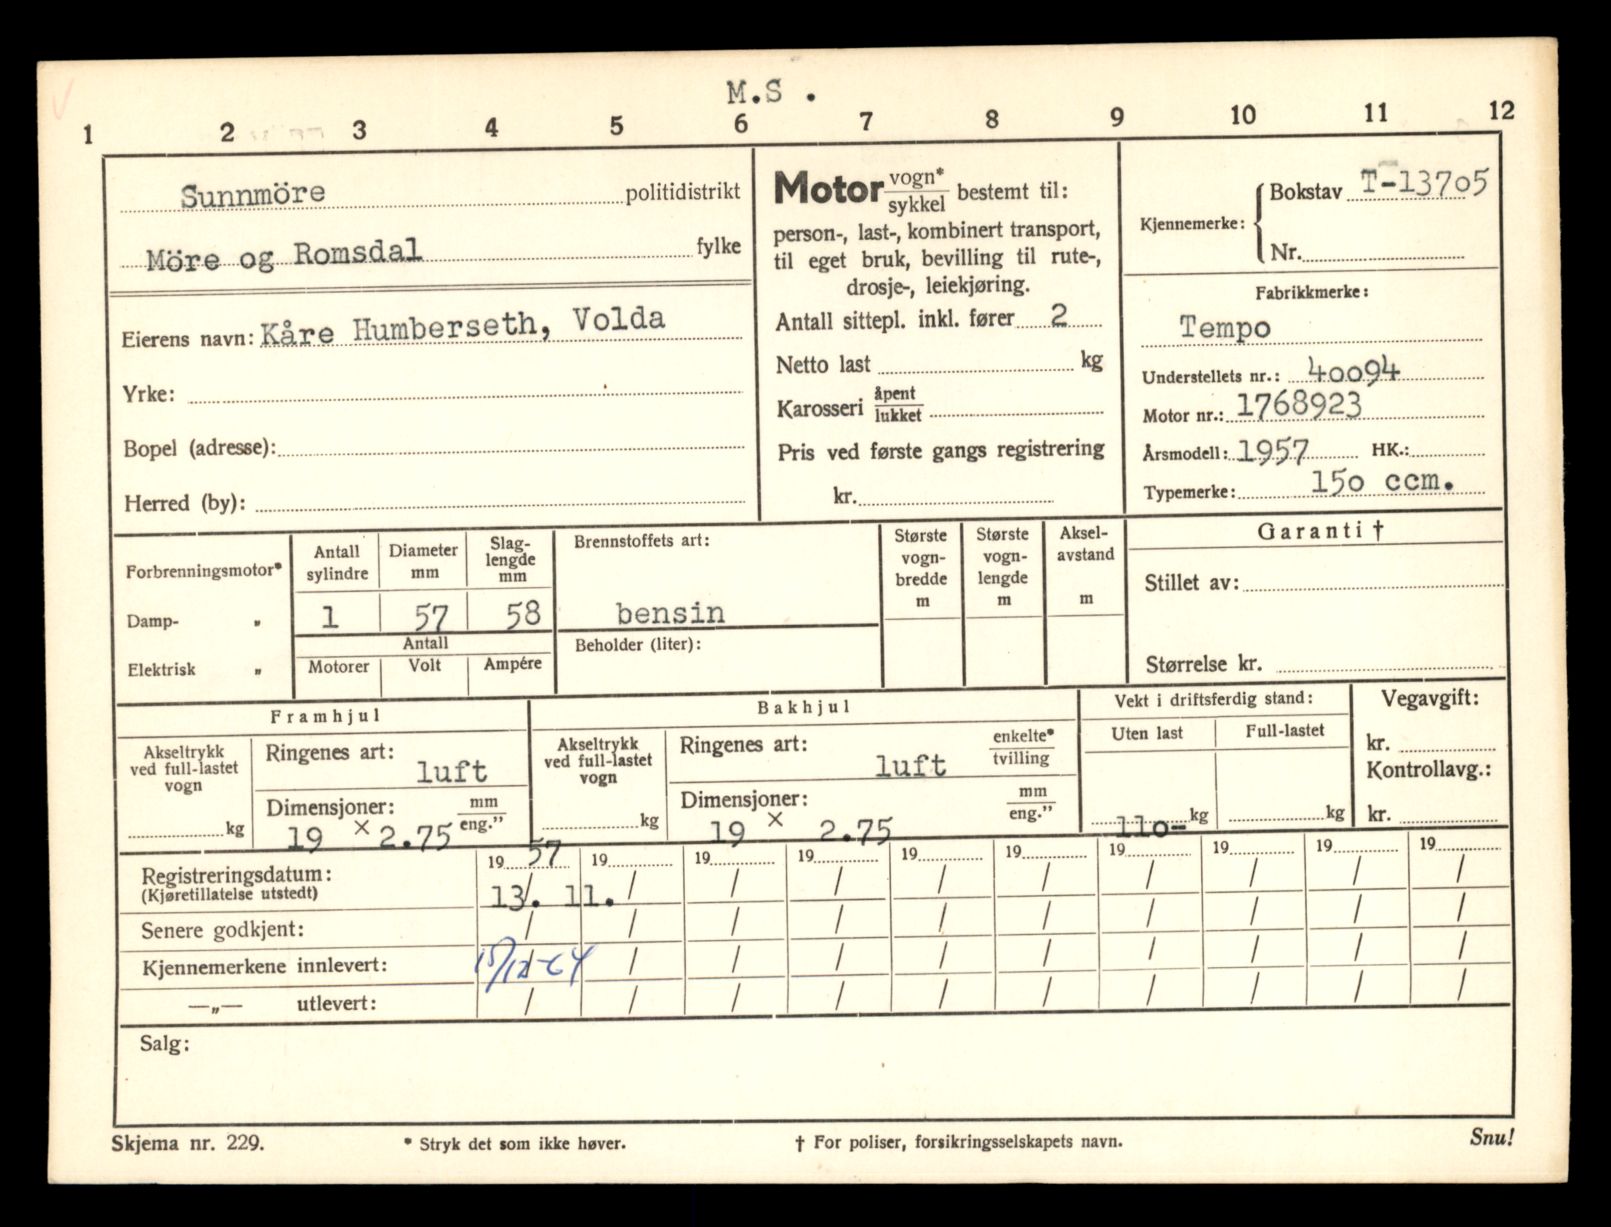 M.S .
1 2 3 4 5 6 7 8 9 10 11 12
Sunnmöre politidistrikt
Möre og Romsdal fylke
Eierens navn: Kåre Humberseth, Volda
Yrke:
Bopel (adresse):
Herred (by):
Motor vogn* sykkel bestemt til:
person-, last-, kombinert transport,
til eget bruk, bevilling til rute-,
drosje-, leiekjøring.
Antall sittepl. inkl. fører 2
Netto last kg
Karosseri åpent lukket
Pris ved første gangs registrering
kr.
Kjennemerke: Bokstav T-13705
Nr.
Fabrikkmerke:
Tempo
Understellets nr.: 40094
Motor nr.: 1768923
Årsmodell: 1957 HK.:
Typemerke: 150 ccm.
Forbrenningsmotor*
Damp- „
Elektrisk „
Antall sylindre
Diameter mm
Slag-lengde mm
1 57 58
Antall
Motorer Volt Ampére
Brennstoffets art:
bensin
Beholder (liter):
Største vogn-bredde m
Største vogn-lengde m
Aksel-avstand m
Garanti †
Stillet av:
Størrelse kr.
Framhjul
Akseltrykk ved full-lastet vogn
kg
Ringenes art:
luft
Dimensjoner: mm eng.”
19 × 2.75
Bakhjul
Akseltrykk ved full-lastet vogn
kg
Ringenes art: enkelte* tvilling
luft
Dimensjoner: mm eng.”
19 × 2.75
Vekt i driftsferdig stand:
Uten last Full-lastet
110- kg kg
Vegavgift:
kr.
Kontrollavg.:
kr.
19 57 19 19 19 19 19 19 19 19 19
Registreringsdatum: 13. 11. / / / / / / / / /
(Kjøretillatelse utstedt)
Senere godkjent: / / / / / / / / / /
Kjennemerkene innlevert: 15/12-64 / / / / / / / / /
—„— utlevert: / / / / / / / / / /
Salg:
Skjema nr. 229. * Stryk det som ikke høver. † For poliser, forsikringsselskapets navn. Snu!